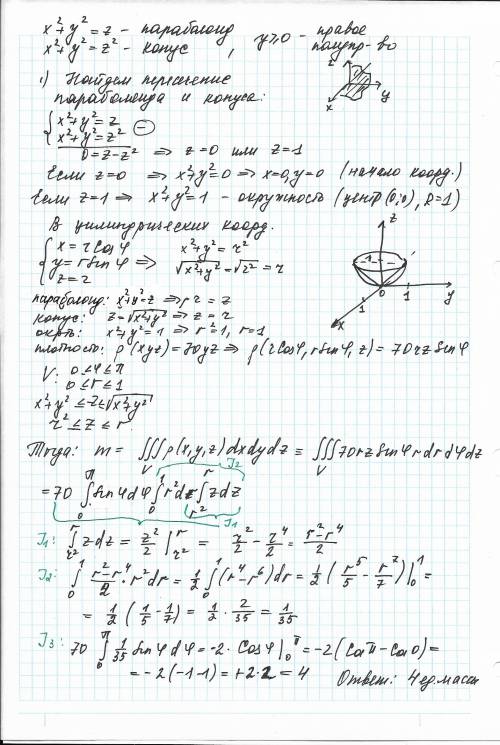 x²+y²=z - параболоид
x²+y²=z² - конус , y≥0 - правое полупр-во
z
y
x
1) Найдем пересечение
параболоида и конуса:
{ x²+y²=z
x²+y²=z² (−)
0=z-z² ⇒ z=0 или z=1
Если z=0 ⇒ x²+y²=0 ⇒ x=0, y=0 (начало коорд.)
Если z=1 ⇒ x²+y²=1 - окружность (центр (0;0), R=1)
В цилиндрических коорд.
{ x=rcosφ x²+y²=r²
y=rsinφ ⇒ √x²+y² = √r² = r
z=z
z
1
0
1
1
y
x
параболоид: x²+y²=z ⇒ r²=z
конус: z=√x²+y² ⇒ z=r
окр-ть: x²+y²=1 ⇒ r²=1, r=1
плотность: ρ(xyz)=70yz ⇒ ρ(rcosφ, rsinφ, z)=70rzsinφ
V: 0≤φ≤π
0≤r≤1
x²+y²≤z≤√x²+y²
r²≤z≤r
Тогда: m = ∭_V ρ(x,y,z)dxdydz = ∭_V 70rzsinφ rdrdφdz
=70 ∫₀^π sinφdφ ∫₀¹ r²dr ∫_{r²}^r zdz
J₂
J₁
J₁: ∫_{r²}^r zdz = z²/2 |_{r²}^r = r²/2 - r⁴/2 = (r²-r⁴)/2
J₂: ∫₀¹ (r²-r⁴)/2 · r²dr = 1/2 ∫₀¹ (r⁴-r⁶)dr = 1/2 (r⁵/5 - r⁷/7)|₀¹ =
= 1/2 (1/5 - 1/7) = 1/2 · 2/35 = 1/35
J₃: 70 ∫₀^π 1/35 sinφdφ = -2·cosφ|₀^π = -2(cosπ-cos0)=
= -2(-1-1) = +2·2 = 4 Ответ: 4 ед. массы